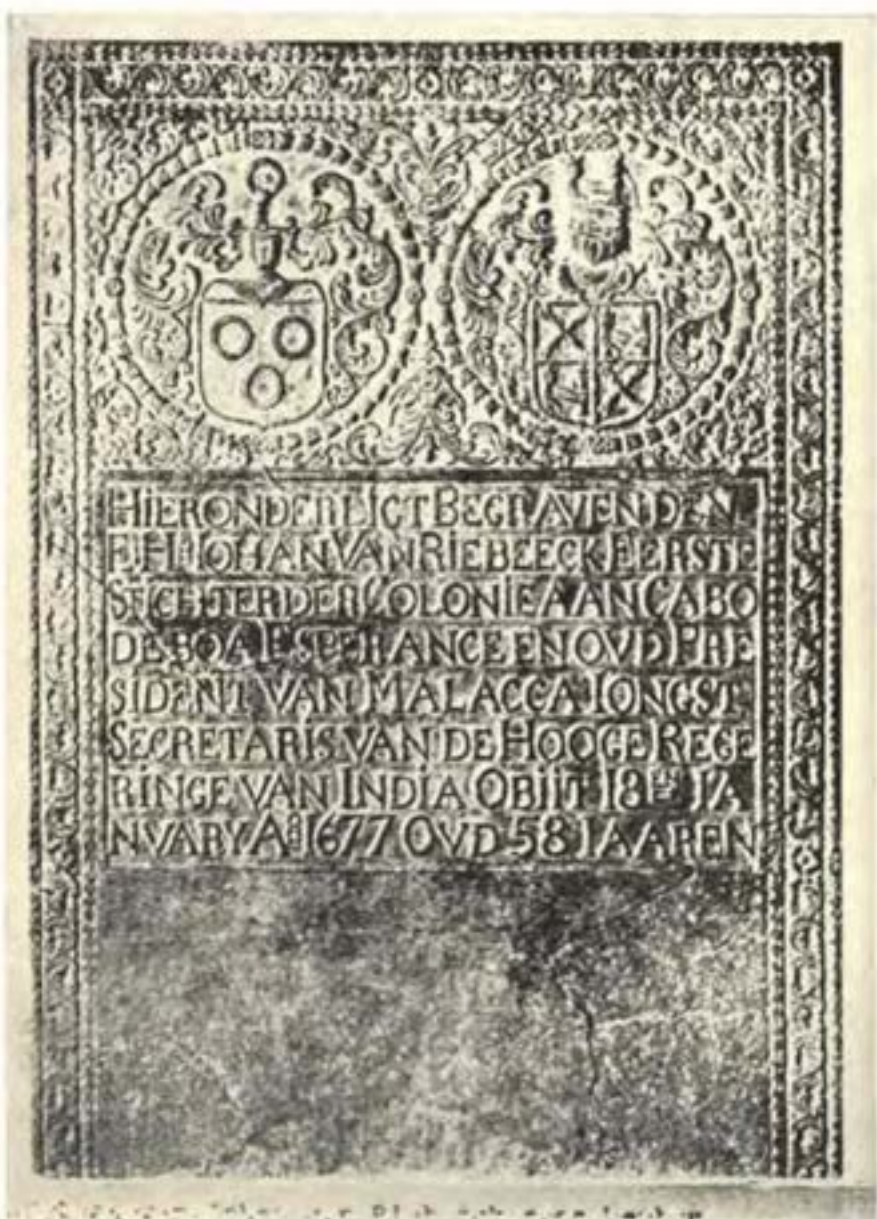 HIERONDER LIGT BEGRAVEN DEN
E H<sup>R</sup> IOHAN VAN RIEBEECK EERSTE
STICHTER DER COLONIE AAN CABO
DE BOA ESPERANCE EN OVD PRE
SIDENT VAN MALACCA IONGST
SECRETARIS VAN DE HOOGE REGE
RINGE VAN INDIA OBIIT 18<sup>EN</sup> IA
NVARY A<sup>o</sup> 1677 OVD 58 IAAREN